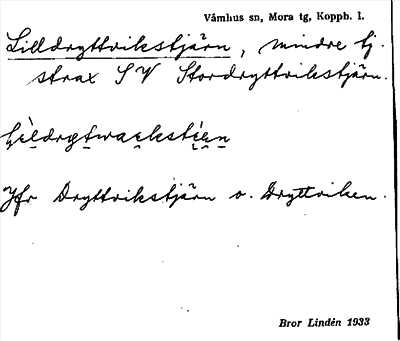 Våmhus sn, Mora tg, Koppb. l.
Lilldryttvikstjärn, mindre tj.
strax SV Stordryttvikstjärn.
Jfr Dryttvikstjärn o. Dryttviken.
Bror Lindén 1933